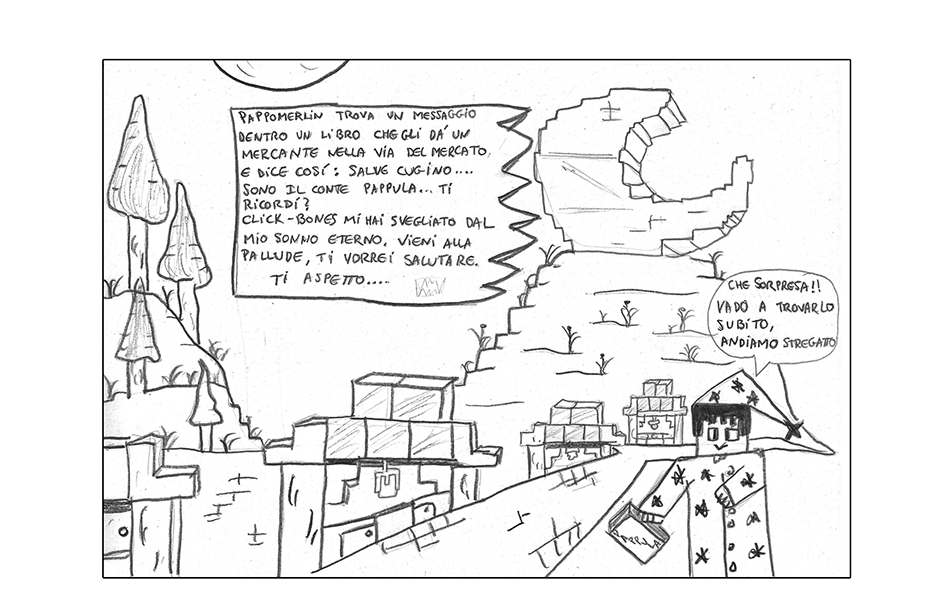 PAPPOMERLIN TROVA UN MESSAGGIO
DENTRO UN LIBRO CHE GLI DA' UN
MERCANTE NELLA VIA DEL MERCATO,
E DICE COSÍ: SALVE CUGINO....
SONO IL CONTE PAPPULA... TI
RICORDI?
CLICK-BONES MI HAI SVEGLIATO DAL
MIO SONNO ETERNO. VIENI ALLA
PALLUDE, TI VORREI SALUTARE.
TI ASPETTO.....
CHE SORPRESA!!
VADO A TROVARLO
SUBITO,
ANDIAMO STREGATTO
PAPPULA